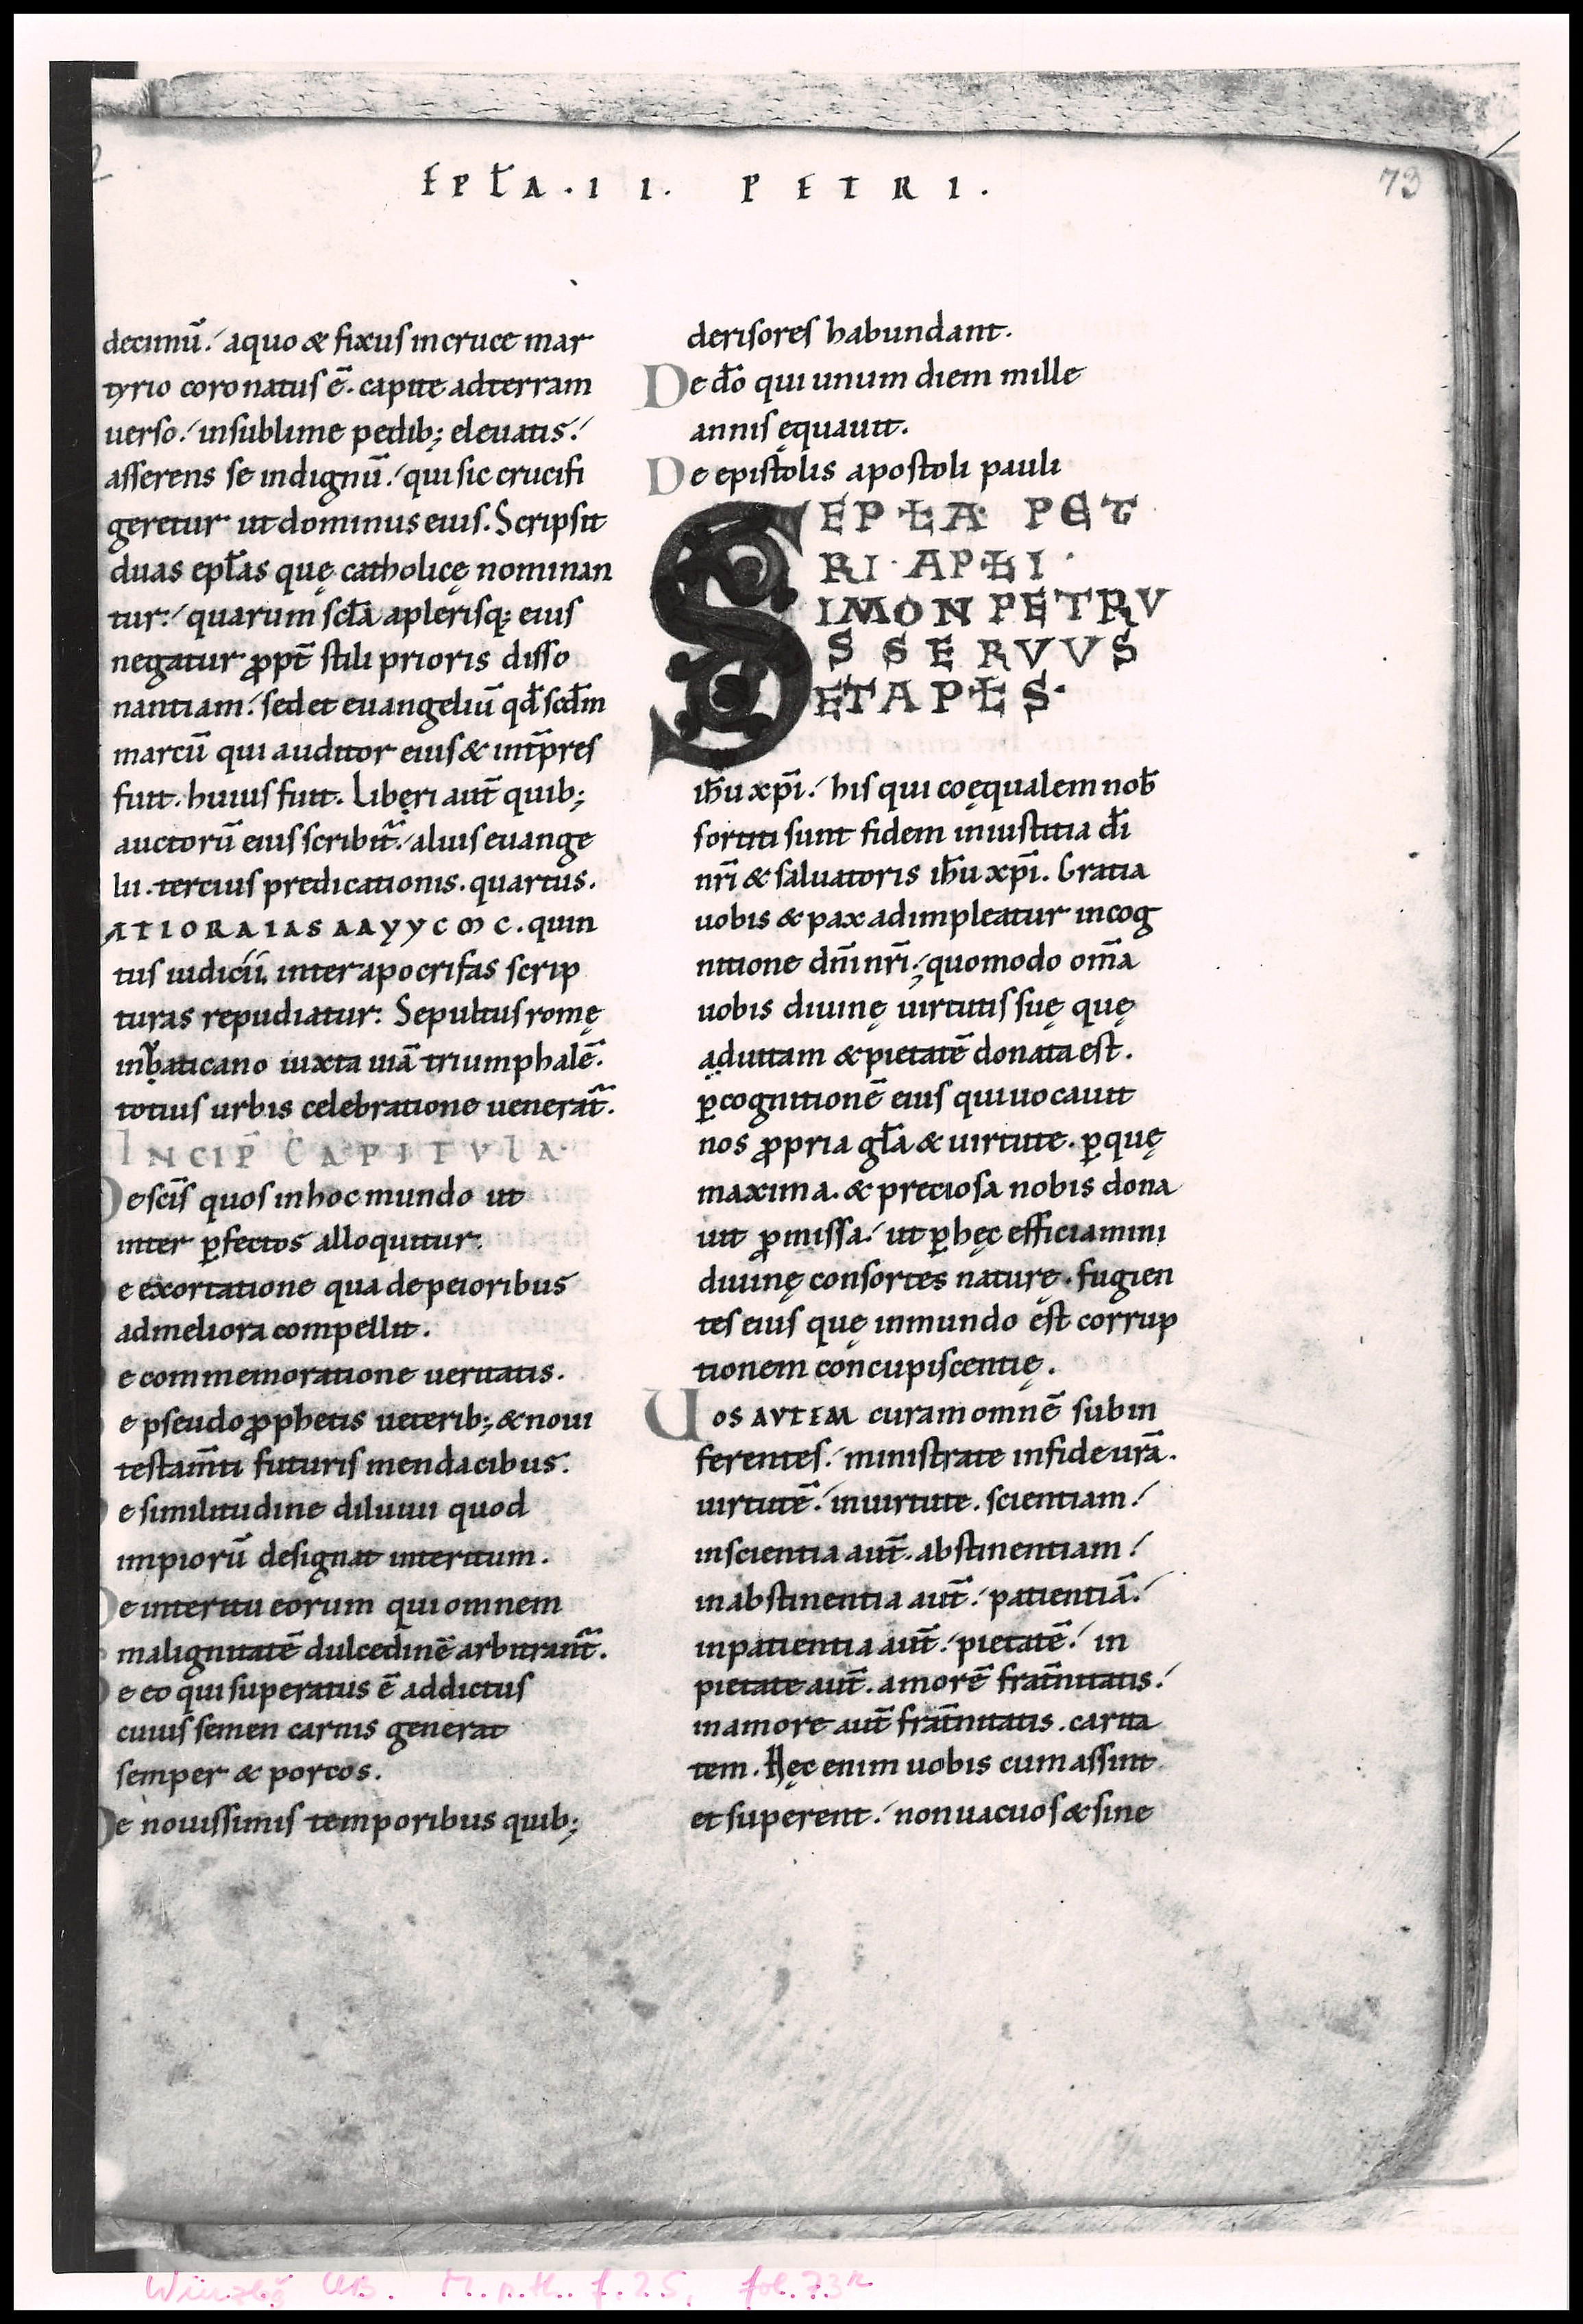 EPŁA . I I . P E T R I .
73
decimū. aquo & fixus incruce mar
tyrio coronatus ē. capite adterram
uerso. insublime pedib; eleuatis.
asserens se indignū. qui sic crucifi
geretur ut dominus eius. Scripsit
duas epłas quę catholicę nominan
tur. quarum scđa aplerisq; eius
negatur ꝓpt̄ stili prioris disso
nantiam. sed et euangeliū qđ scđm
marcū qui auditor eius & int̄pres
fuit. huius fuit. Liberi aut̄ quib;
auctorū eius scribit̄. aluis euange
lii. tercius predicationis. quartus.
ATIORAIAS AAYYCMC. quin
tus iudicii. inter apocrifas scrip
turas repudiatur. Sepultus romę
inbaticano iuxta uiā triumphalē.
totius urbis celebratione uenerat̄.
INCIP̄ CAPITVLA.
De sc̄is quos inhoc mundo ut
inter ꝑfectos alloquitur.
e exortatione qua depeioribus
admeliora compellit.
e commemoratione ueritatis.
e pseudo ꝓphetis ueterib; & noui
testam̄ti futuris mendacibus.
e similitudine diluuii quod
impiorū designat interitum.
De interitu eorum qui omnem
malignitatē dulcedinē arbitrant̄.
e eo qui superatus ē addictus
cuius semen carnis generat
semper & porcos.
De nouissimis temporibus quib;
derisores habundant.
De đo qui unum diem mille
annis ęquauit.
De epistolis apostoli pauli
EPŁA PET
RI APŁI
SIMON PETRV
S SERVVS
ET APŁS.
ihu xp̄i. his qui coęqualem nob̄
sortiti sunt fidem iniustitia đi
nr̄i & saluatoris ihu xp̄i. Gratia
uobis & pax adimpleatur incog
nitione dn̄i nr̄i. quomodo om̄a
uobis diuinę uirtutis suę quę
aduitam & pietatē donata est.
ꝑcognitionē eius qui uocauit
nos ꝓpria gła & uirtute. ꝑquę
maxima. & preciosa nobis dona
uit ꝓmissa. ut ꝑhęc efficiamini
diuinę consortes naturę. fugien
tes eius quę inmundo est corrup
tionem concupiscentię.
UOS AVTEM curam omnē subin
ferentes. ministrate infide ur̄a.
uirtutē. inuirtute. scientiam.
inscientia aut̄. abstinentiam.
inabstinentia aut̄. patientiā.
inpatientia aut̄. pietatē. in
pietate aut̄. amorē frat̄nitatis.
inamore aut̄ frat̄nitatis. carita
tem. Hęc enim uobis cum assint
et superent. non uacuos & sine
Würzbg UB. M.p.th. f. 25, fol. 73r